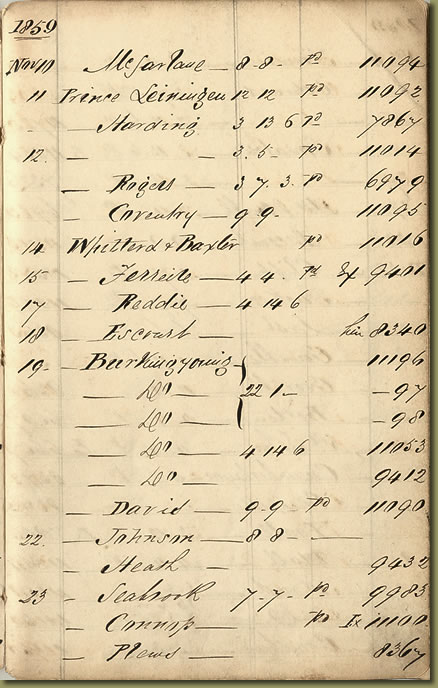 1859
Nov 10 McFarlane — 8 - 8 - pd 11094
11 Prince Leiningen 12 12 pd 11092
- — Harding 3 13 6 pd 7867
12 — — 3 . 5 - pd 11014
— Rogers — 3 7 . 3 . pd 6979
— Coventry — 9 9 - 11095
14 Whitterd & Baxter pd 11016
15 — — 4 4 . pd Ex 9401
17 — Reddie — 4 14 6
18 — Escrust — 8340
19 - — 11196
— Do — 22 1 - - 97
— Do — - 98
— Do — 4 14 6 11053
— Do — 9412
— David — 9 - 9 - pd 11090
22 . — Johnson — 8 8 - —
— Heath — 9432
23 — Seabrook — 7 - 7 - pd 9983
— — pd Ex 11100
— Plews — 8367